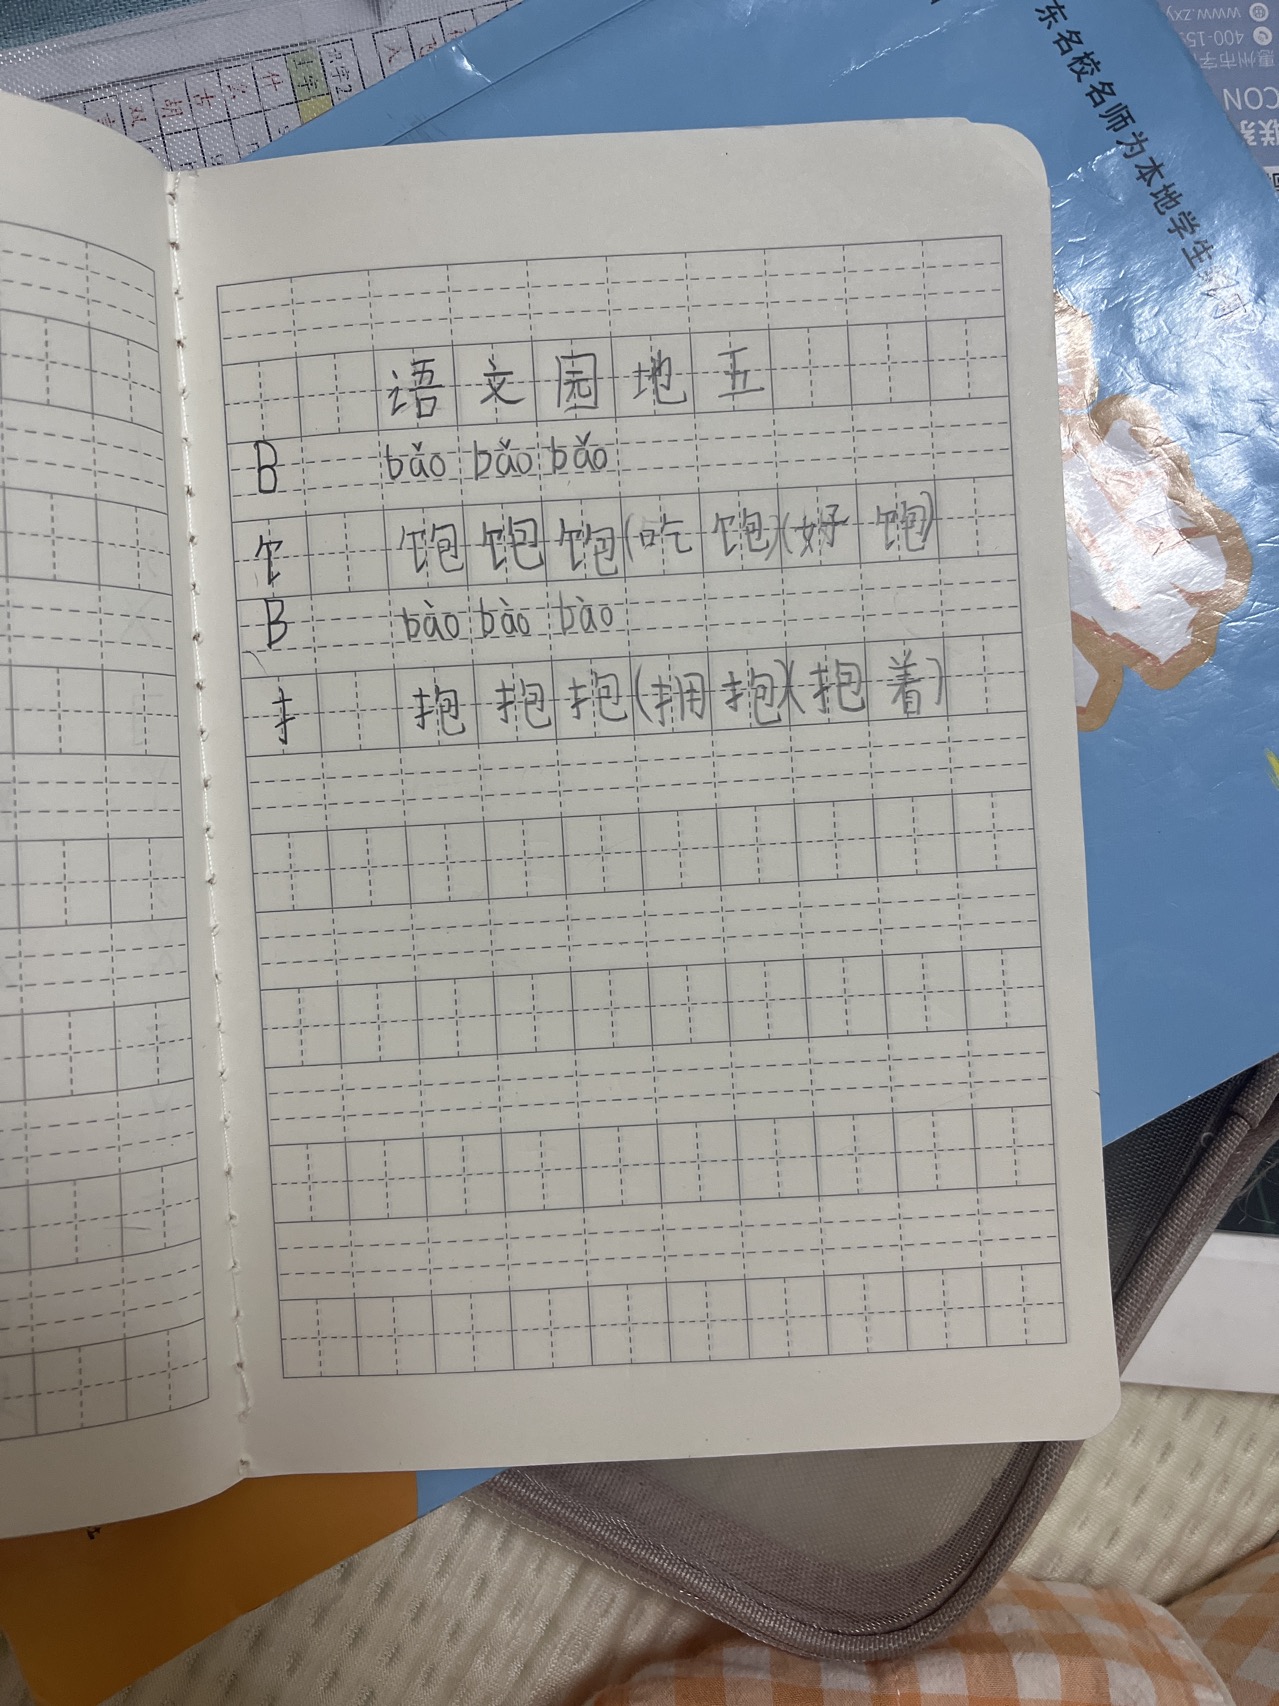 东名校名师为本地学生
语文园地五
B bǎo bǎo bǎo
饣 饱 饱 饱(吃饱)(好饱)
B bào bào bào
扌 抱 抱 抱(拥抱)(抱着)